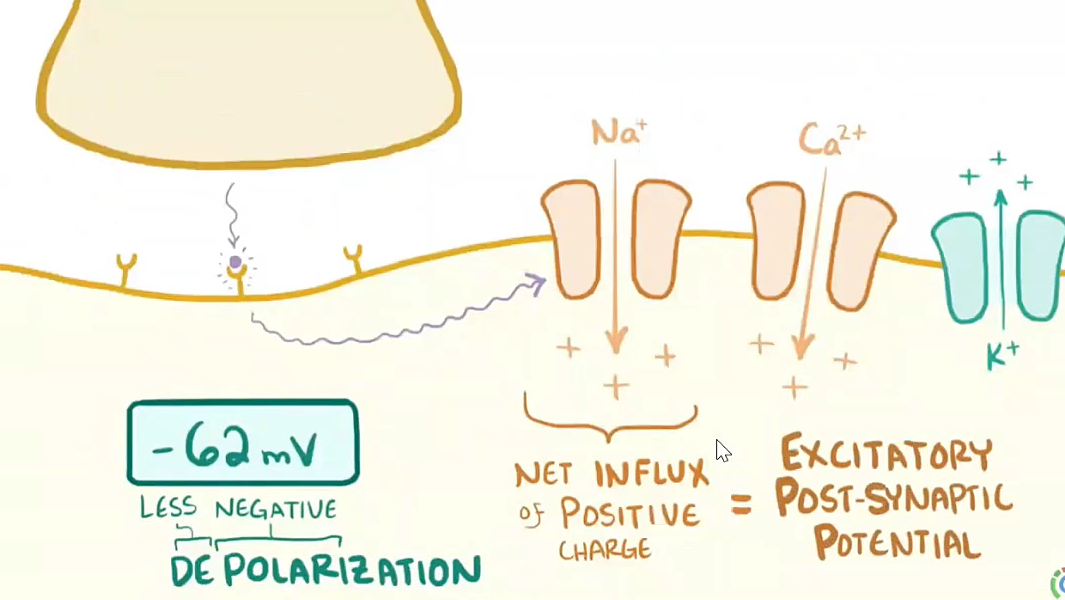 Na⁺
Ca²⁺
+ + +
K⁺
+ + +
+ + +
-62 mV
LESS NEGATIVE
DEPOLARIZATION
NET INFLUX
OF POSITIVE
CHARGE
=
EXCITATORY
POST-SYNAPTIC
POTENTIAL